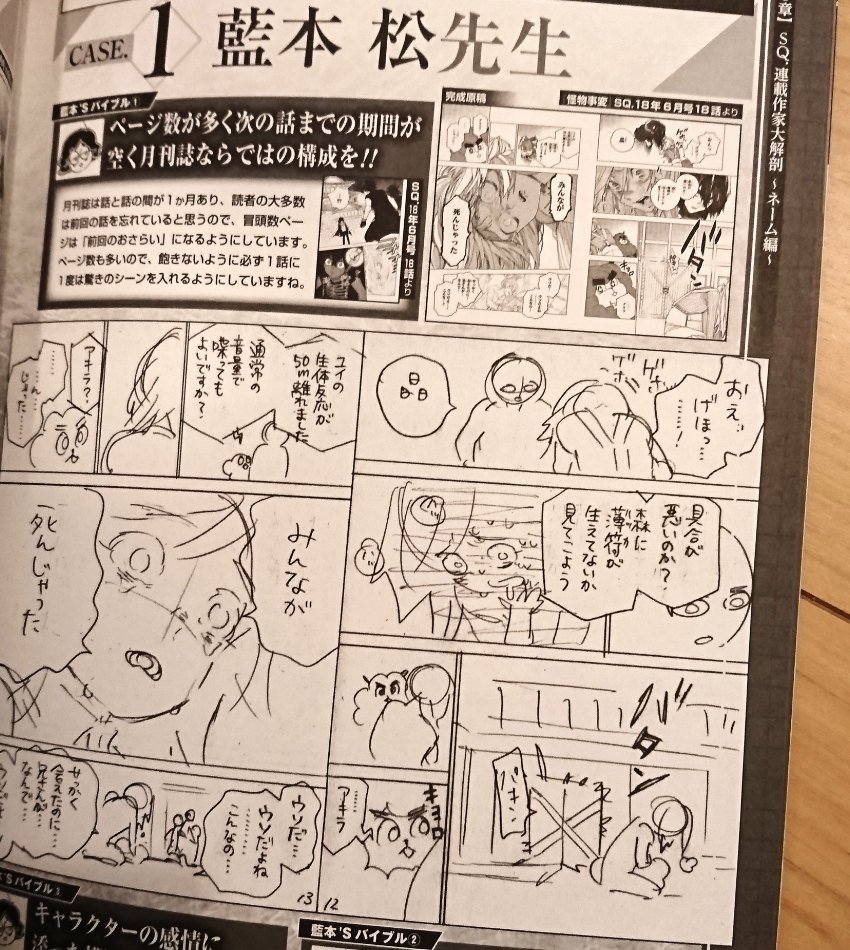 CASE.1 藍本 松先生
章】 SQ.連載作家大解剖 ～ネーム編～
藍本'Sバイブル1
ページ数が多く次の話までの期間が
空く月刊誌ならではの構成を!!
月刊誌は話と話の間が1ヵ月あり、読者の大多数
は前回の話を忘れていると思うので、冒頭数ペー
ジは「前回のおさらい」になるようにしています。
ページ数も多いので、飽きないように必ず1話に
1度は驚きのシーンを入れるようにしていますね。
SQ.18年6月号 18話より
完成原稿
怪物事変 SQ.18年6月号18話より
バタン
みんなが
死んじゃった
おえ…
げほっ…
……!
ゲホ
ゲホ
具合が
悪いのか?
森に
薄荷が
生えてないか
見てこよう
バタン
バキン
キョロ
アキラ
……
12
ユイの
生体反応が
50m離れました
通常の
音量で
喋っても
よいですか?
アキラ?
……
…ん…
じゃった……
みんなが
死んじゃった
ウソだ…
ウソだよね
こんなの……
せっかく
会えたのに…
兄さんが…
なんで…
13
藍本'Sバイブル②
キャラクターの感情に